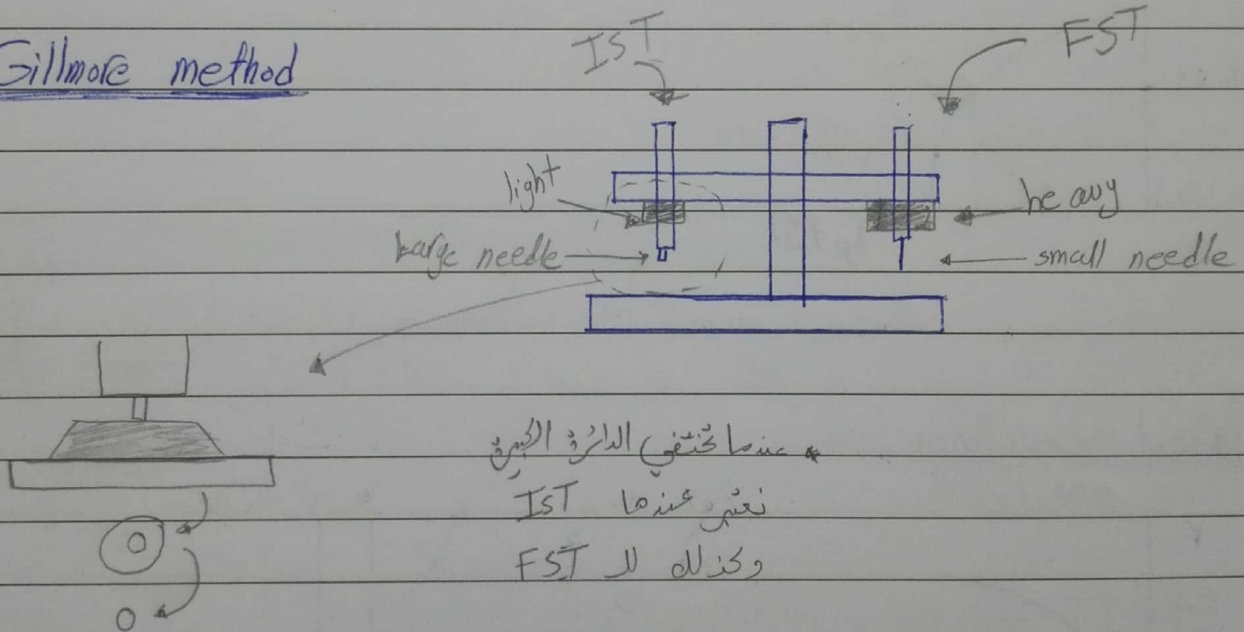 Gillmore method
IST
FST
light
heavy
Large needle
small needle
* عندما تختفي الدائرة الكبيرة
نعتبر عندها IST
وكذلك لل FST